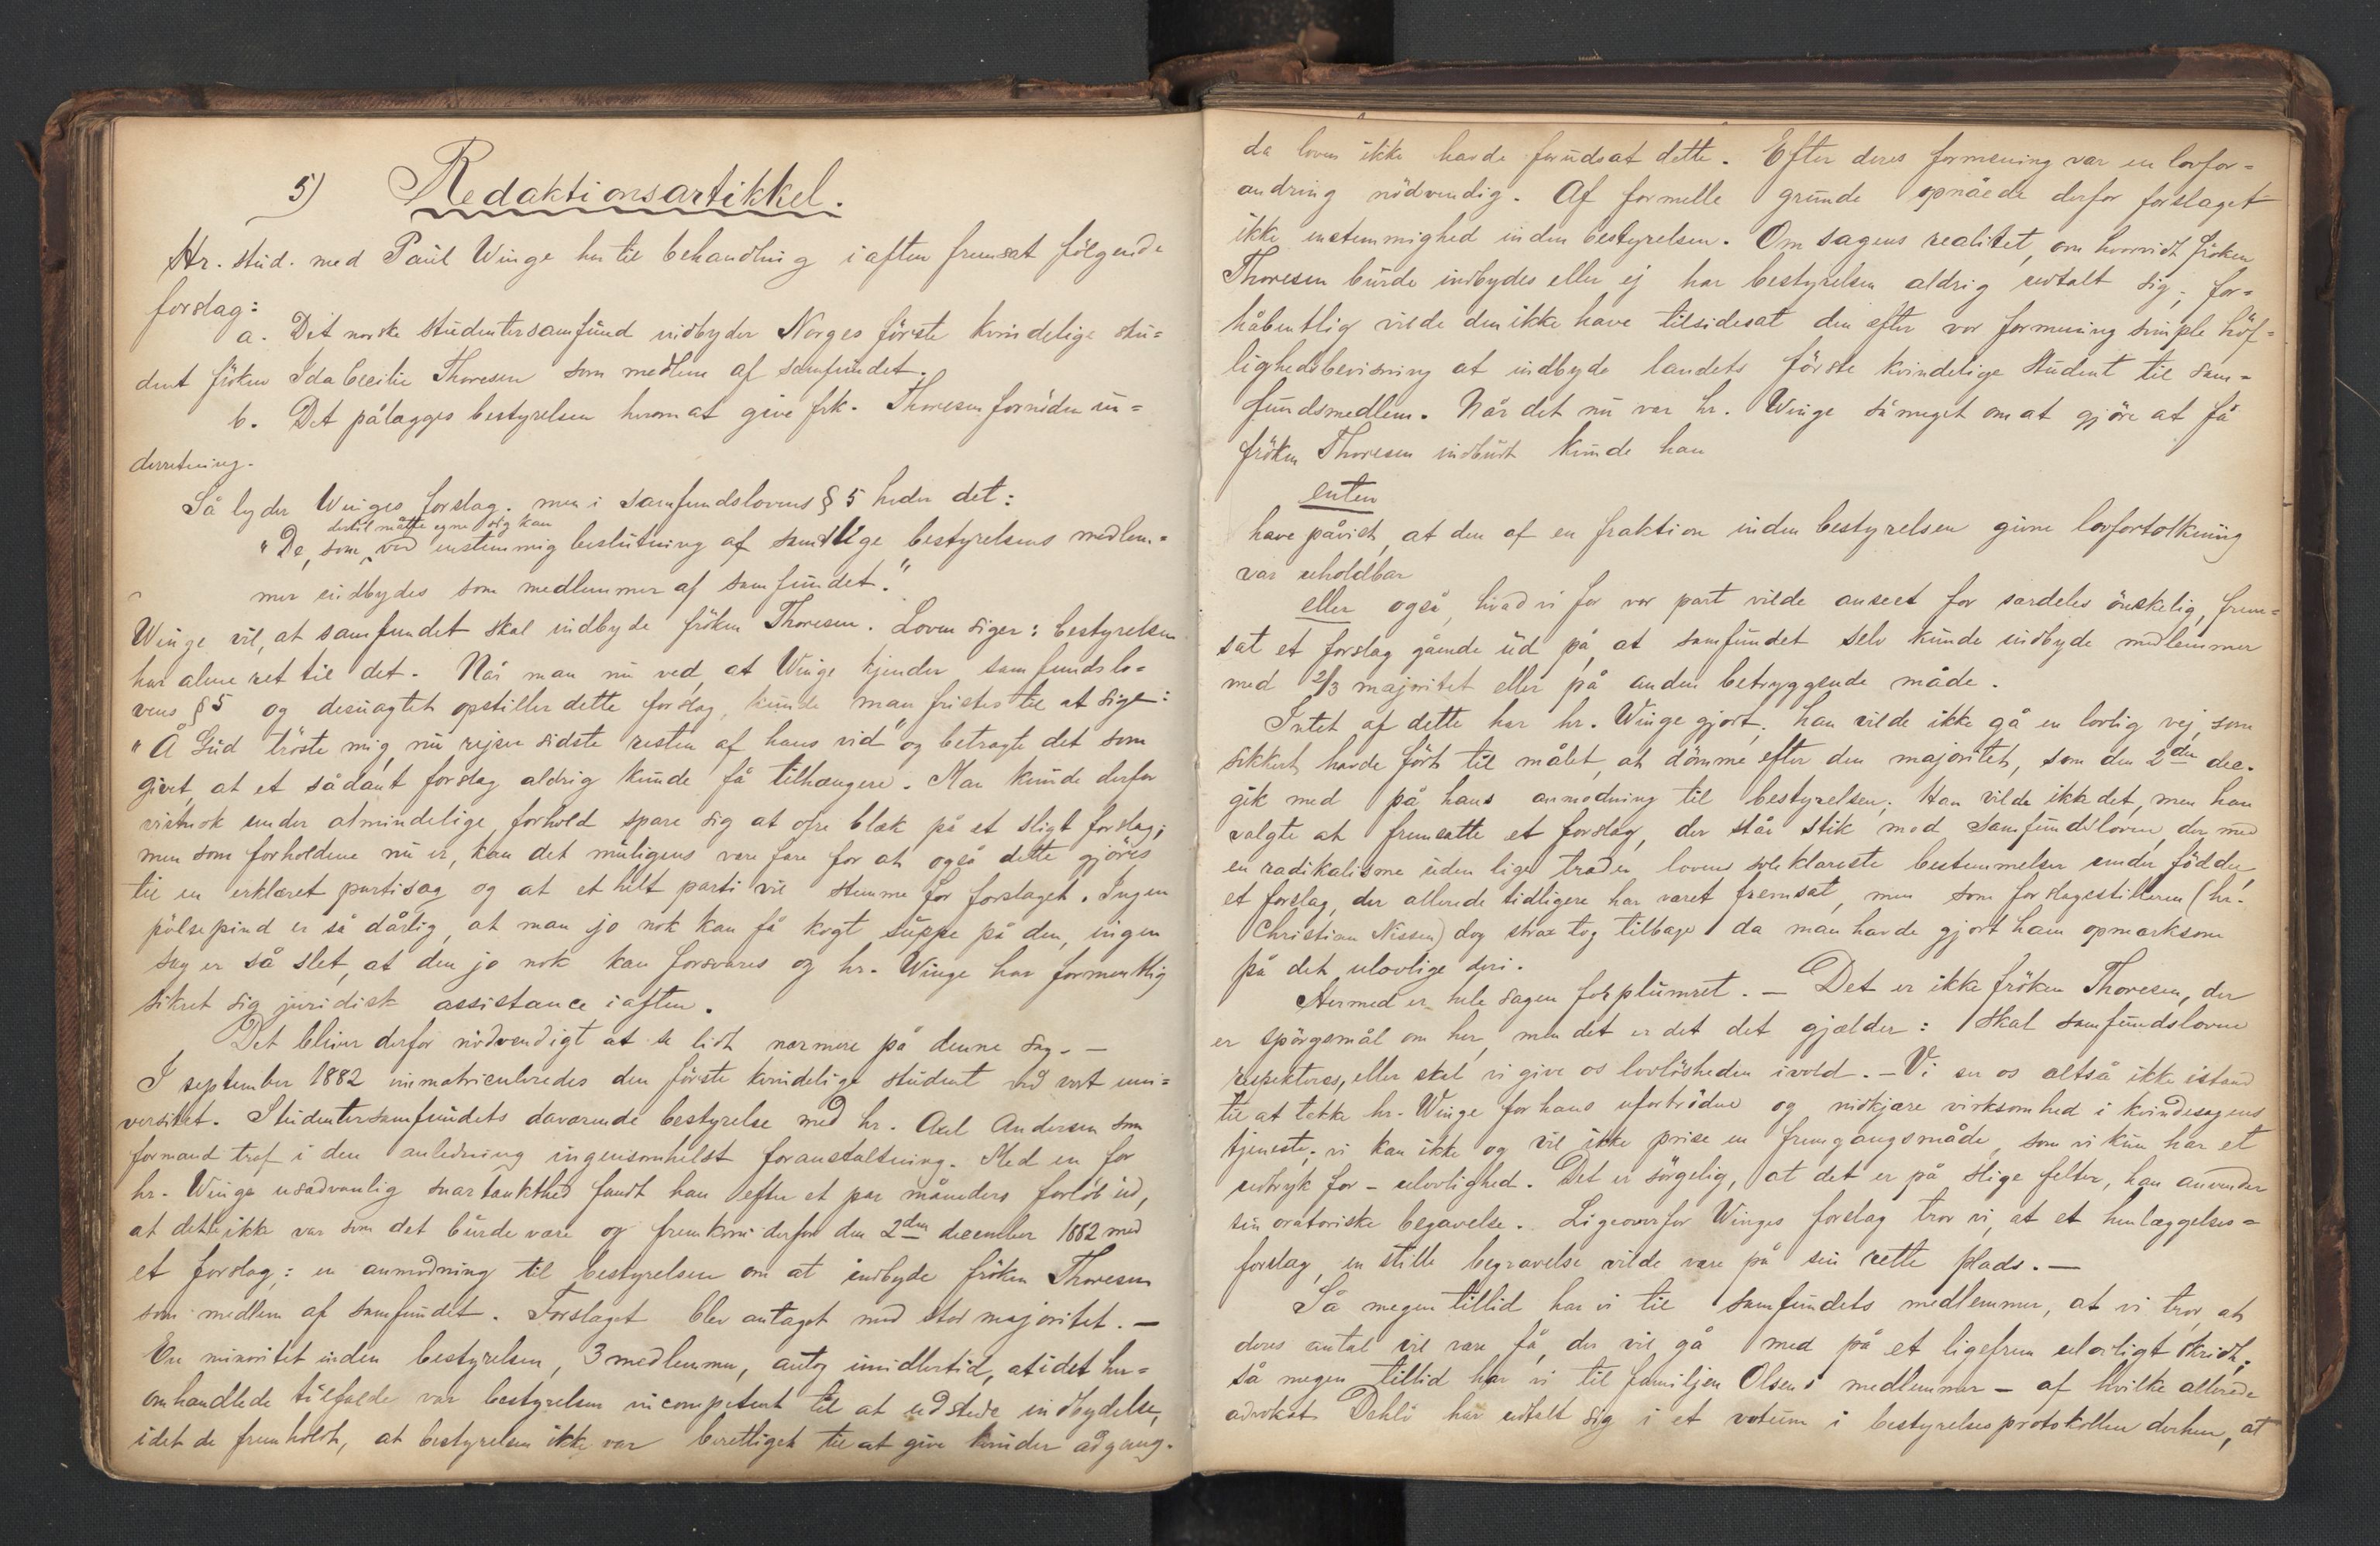 5) Redaktionsartikkel.
Hr. stud. med Paul Winge har til behandling iaften fremsat følgende
forslag:
a. Det norske studentersamfund indbyder Norges første kvindelige stu=
dent frøken Ida Cecilie Thoresen som medlem af samfundet.
b. Det pålægges bestyrelsen herom at give frk. Thoresen fornøden un=
derretning.
Så lyder Winges forslag. men i samfundslovens § 5 heder det:
dertil måtte egne sig kan
"De, som ved enstemmig beslutning af samtlige bestyrelsens medlem=
mer indbydes som medlemmer af samfundet."
Winge vil, at samfundet skal indbyde frøken Thoresen. Loven siger: bestyrelsen
har alene ret til det. Når man nu ved, at Winge kjender samfundslo=
vens § 5 og desuagtet opstiller dette forslag, kunde man fristes til at sige:
"Å Gud trøste mig, nu rejser sidste resten af hans vid" og betragte det som
givet, at et sådant forslag aldrig kunde få tilhængere. Man kunde derfor
vistnok under almindelige forhold spare sig at ofre blæk på et sligt forslag;
men som forholdene nu er, kan det muligens være fare for at også dette gjøres
til en erklæret partisag og at et helt parti vil stemme for forslaget. Ingen
pølsepind er så dårlig, at man jo nok kan få kogt suppe på den, ingen
sag er så slet, at den jo nok kan forsvares og hr. Winge har formentlig
sikret sig juridisk assistance iaften.
Det bliver derfor nødvendigt at se lidt nærmere på denne sag. —
I september 1882 immatriculeredes den første kvindelige student ved vort uni=
versitet. Studentersamfundets daværende bestyrelse med hr. Axel Andersen som
formand traf i den anledning ingensomhelst foranstaltning. Med en for
hr. Winge usædvanlig snartænkthed fandt han efter et par måneders forløb ud,
at dette ikke var som det burde være og fremkom derfor den 2den december 1882 med
et forslag,: en anmodning til bestyrelsen om at indbyde frøken Thoresen
som medlem af samfundet. Forslaget blev antaget med stor majoritet. —
En minoritet inden bestyrelsen, 3 medlemmer, antog imidlertid, at i det her=
omhandlede tilfælde var bestyrelsen incompetent til at udstede indbydelse,
idet de fremholdt, at bestyrelsen ikke var berettiget til at give kvinder adgang.
da loven ikke havde forudsat dette. Efter deres formening var en lovfor=
andring nødvendig. Af formelle grunde opnåede derfor forslaget
ikke enstemmighed inden bestyrelsen. Om sagens realitet, om hvorvidt frøken
Thoresen burde indbydes eller ej har bestyrelsen aldrig udtalt sig; for=
håbentlig vilde den ikke have tilsidesat den efter vor formening simple høf=
lighedsbevisning at indbyde landets første kvindelige student til sam=
fundsmedlem. Når det nu var hr. Winge så meget om at gjøre at få
frøken Thoresen indbudt kunde han
enten
have påvist, at den af en fraktion inden bestyrelsen givne lovfortolkning
var uholdbar
eller også, hvad vi for vor part vilde anseet for særdeles ønskelig, frem=
sat et forslag gående ud på, at samfundet selv kunde indbyde medlemmer
med 2/3 majoritet eller på anden betryggende måde.
Intet af dette har hr. Winge gjort; han vilde ikke gå en lovlig vej, som
sikkert havde ført til målet, at dømme efter den majoritet, som den 2den dec.
gik med på hans anmodning til bestyrelsen. Han vilde ikke det, men han
valgte at fremsætte et forslag, der står stik mod samfundsloven, der med
en radikalisme uden lige træder lovens soleklareste bestemmelser under fødder,
et forslag, der allerede tidligere har været fremsat, men som forslagsstilleren (hr.
Christian Nissen) dog strax tog tilbage da man havde gjort ham opmærksom
på det ulovlige deri.
Hermed er hele sagen forplumret. — Det er ikke frøken Thoresen, der
er spørgsmål om her, men det er det det gjælder: skal samfundsloven
respekteres, eller skal vi give os lovløsheden ivold. — Vi ser os altså ikke istand
til at takke hr. Winge for hans ufortrødne og nidkjære virksomhed i kvindesagens
tjeneste; vi kan ikke og vil ikke prise en fremgangsmåde, som vi kun har et
udtryk for - ulovlighed. Det er sørgelig, at det er på slige felter, han anvender
sin oratoriske begavelse. Ligeoverfor Winges forslag tror vi, at et henlæggelses=
forslag, en stille begravelse vilde være på sin rette plads. —
Så megen tillid har vi til samfundets medlemmer, at vi tror, at
deres antal vil være få, der vil gå med på et ligefrem ulovligt skridt;
så megen tillid har vi til familjen Olsens medlemmer — af hvilke allerede
advokat Dahle har udtalt sig i et votum i bestyrelsesprotokollen derhen, at